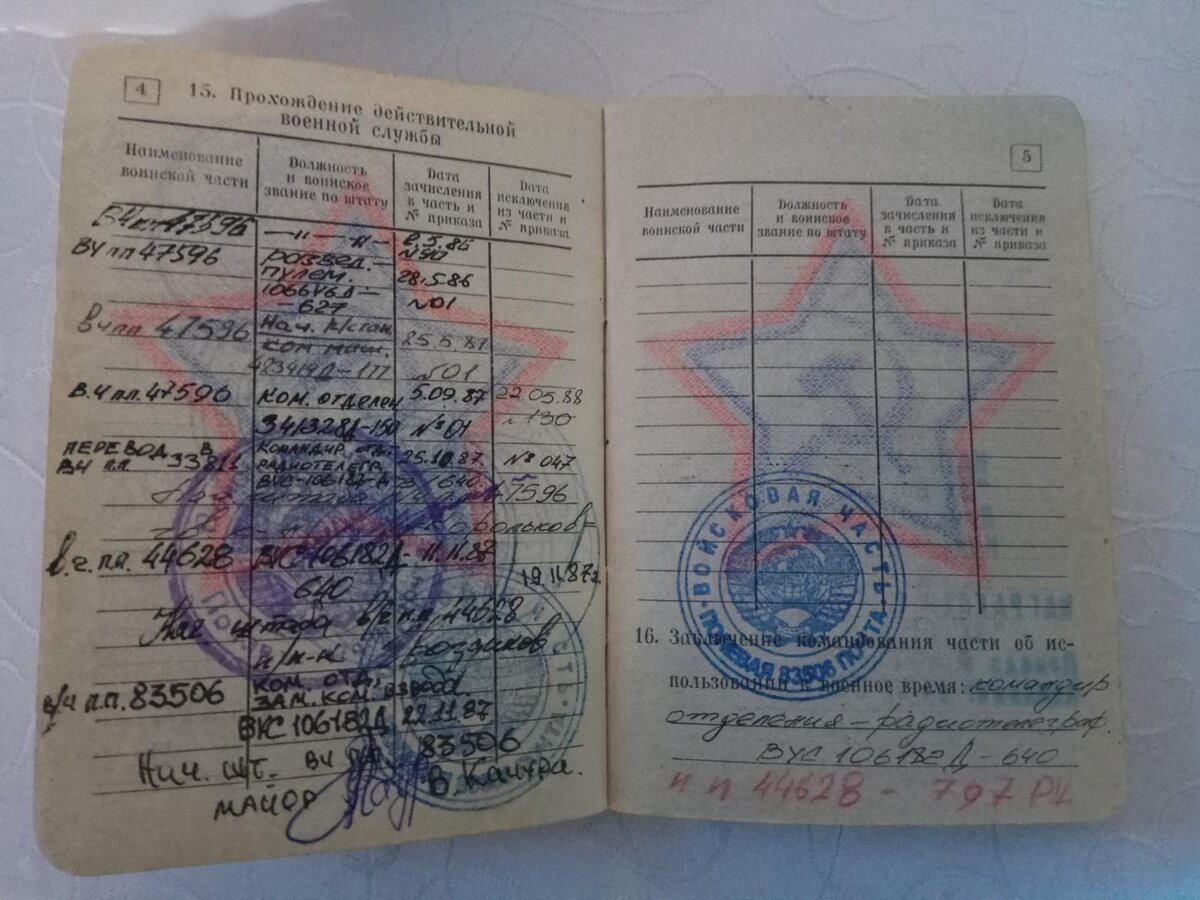 4
15. Прохождение действительной
военной службы
Наименование воинской части
Должность и воинское звание по штату
Дата зачисления в часть и № приказа
Дата исключения из части и № приказа
47596
—"— —"—
№90
ВЧ пп 47596
развед.—
пулем.
28.5.86
1066
№01
-627
в/ч пп. 47596
Нач. р/стан
25.5.87
ком. маш.
№01
В.Ч пп. 47596
ком. отделен
5.09.87
22.05.88
№01
№130
ПЕРЕВОД В
КОМАНДИР ОТД.
ВЧ ПП
РАДИОТЕЛЕГР.
25.10.87.
№ 047
ВУС-106182-Д
640.
47596
Корольков
в.ч. п.п. 44628
106182Д-
11.11.87
640
19.11.87г.
Нач штаба в/ч п.п. 44628
п/п-к
в/ч п.п. 83506
КОМ. ОТД,
ЗАМ. КОМ. ВЗВОДА.
106182Д
22.11.87
Нач. шт. ВЧ ПП. 83506
МАЙОР
В. Качура.
5
Наименование воинской части
Должность и воинское звание по штату
Дата зачисления в часть и № приказа
Дата исключения из части и № приказа
ВОЙСКОВАЯ ЧАСТЬ
ПОЛЕВАЯ ПОЧТА 83506
16. Заключение командования части об ис-
пользовании в военное время: командир
отделения – радиотелеграф.
ВУС 106182Д-640
п п 44628 - 797